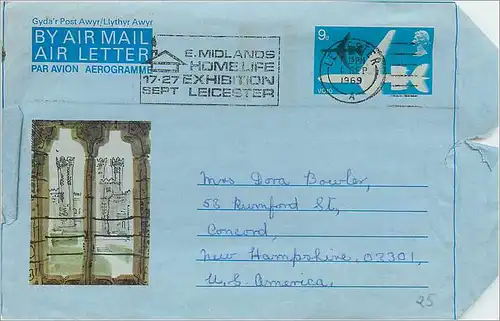 Gyda'r Post Awyr/Llythyr Awyr
BY AIR MAIL
AIR LETTER
PAR AVION AEROGRAMME
E. MIDLANDS
HOMELIFE
17-27 EXHIBITION
SEPT LEICESTER
LEICESTER
SEP
1969
A
9D
VC10
Mrs Dora Bowler,
58 Rumford St,
Concord,
New Hampshire, 03301,
U.S. America.
25